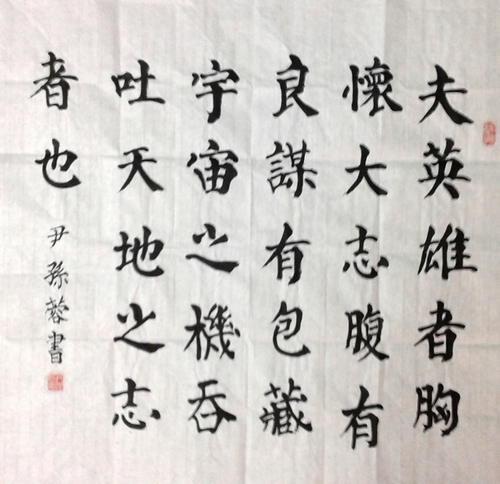 夫英雄者胸
懷大志腹有
良謀有包藏
宇宙之機吞
吐天地之志
者也
尹孫蓉書